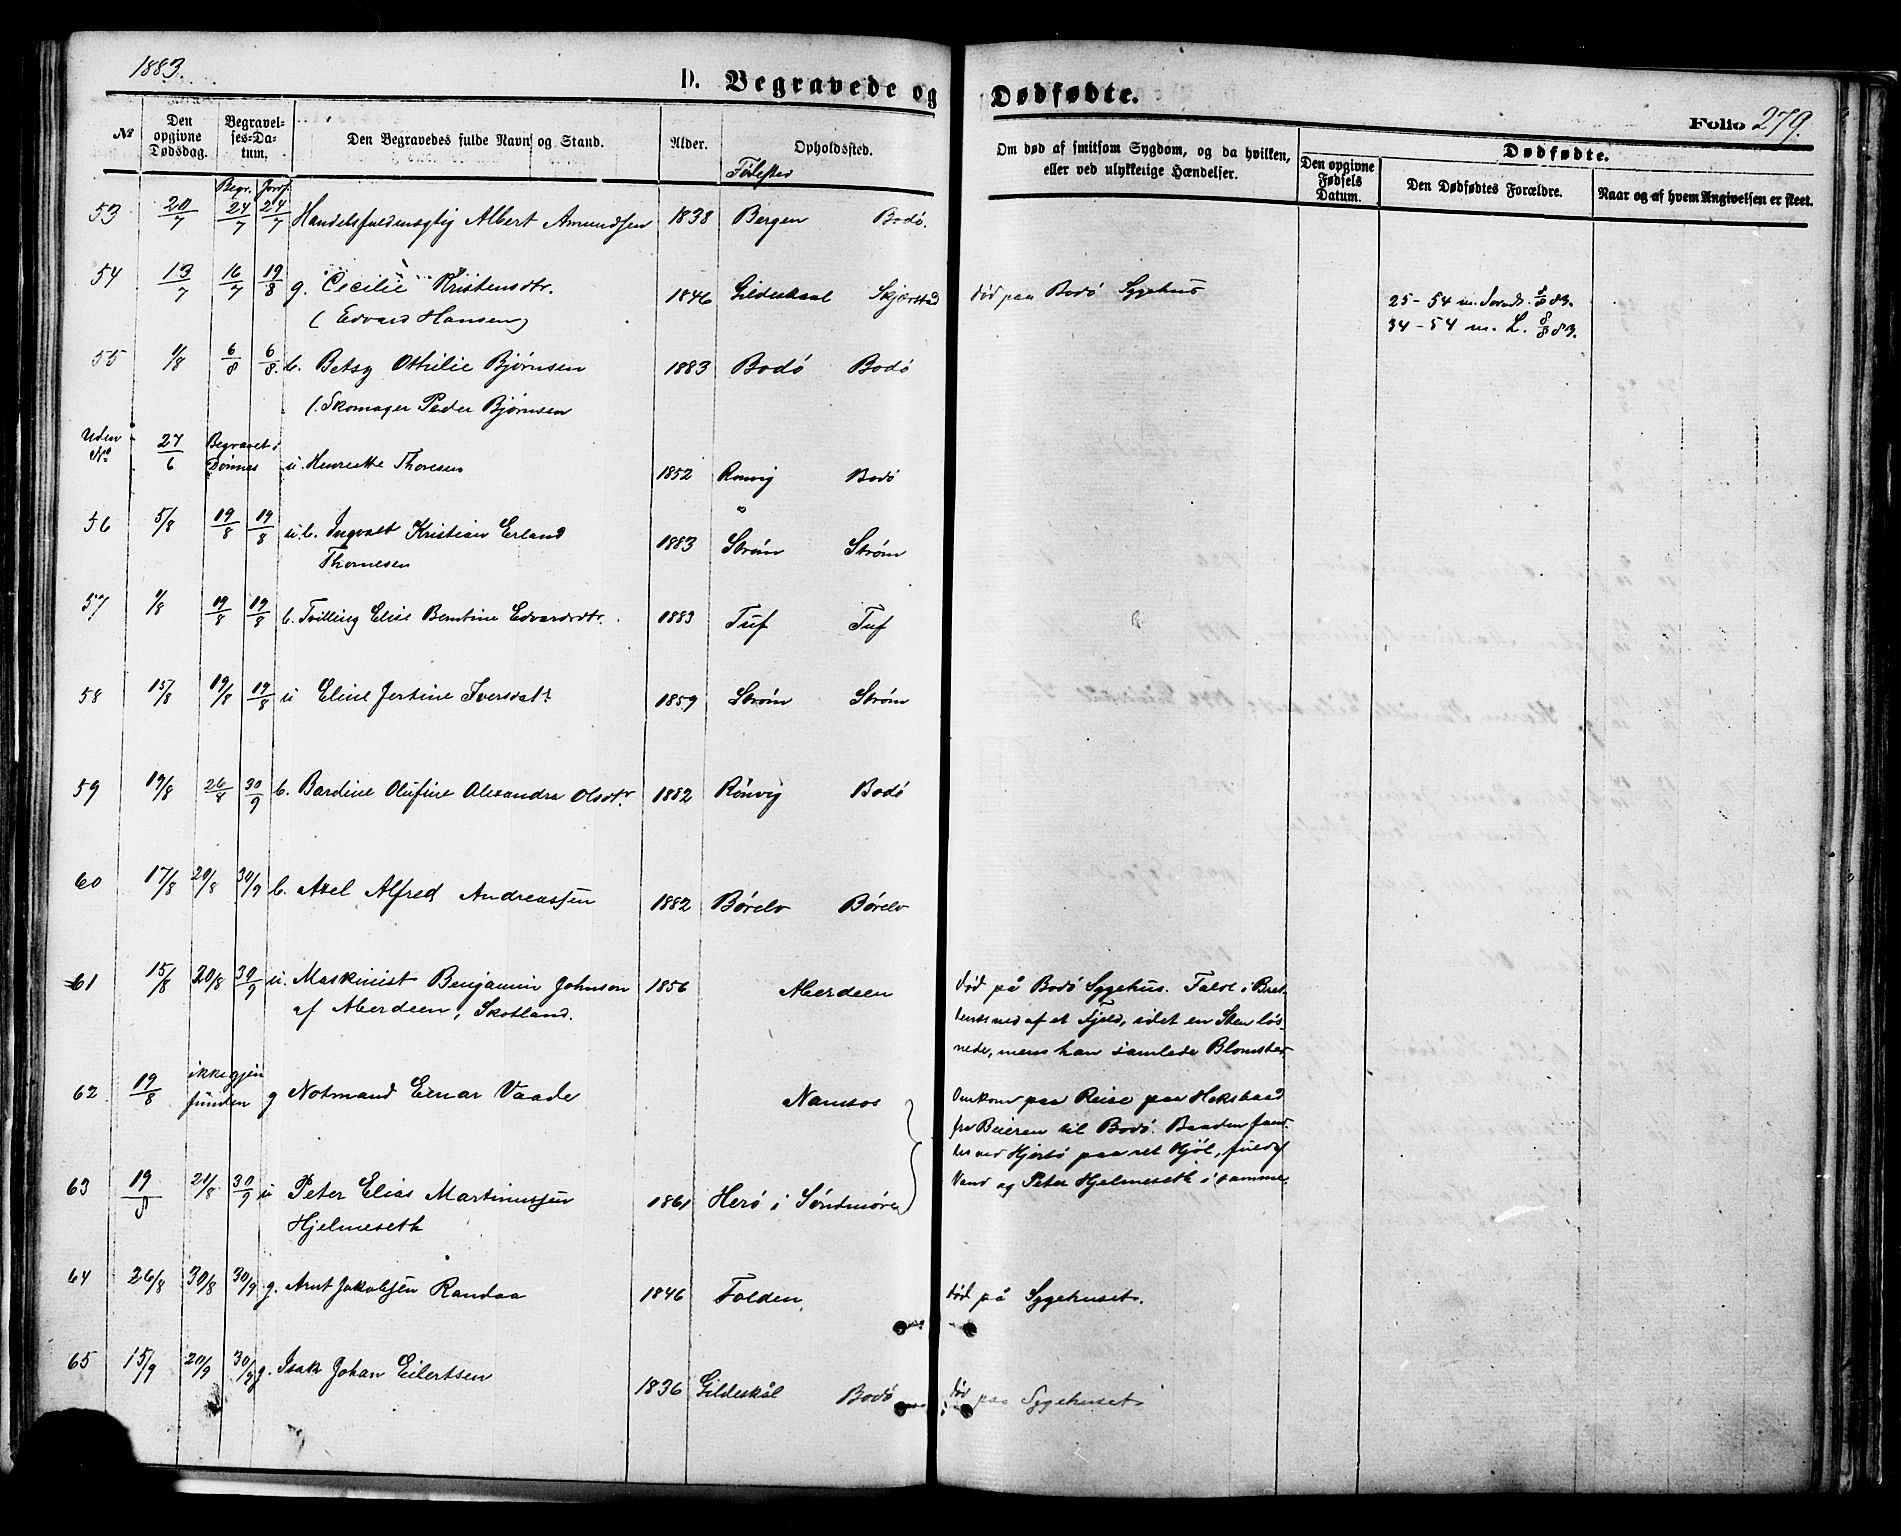 1883.
D. Begravede og Dødfødte.
Folio 279.
№
Den opgivne Dødsdag.
Begravelses-Datum.
Den Begravedes fulde Navn og Stand.
Alder.
Opholdssted.
Om død af smitsom Sygdom, og da hvilken, eller ved ulykkelige Hændelser.
Den opgivne Fødsels Datum.
Dødfødte.
Den Dødfødtes Forældre.
Naar og af hvem Angivelsen er skeet.
Begr. Jordf. Fødested
53 20/7 24/7 24/7 Handelsfuldmægtig Albert Amundsen 1838 Bergen Bodø.
54 13/7 16/7 19/8 g. Cecilie Kristensdtr. 1846 Gildeskaal Skjærstad død paa Bodø Sygehus
(Edvard Hansen)
25-54 m.
34-54 m. L. 8/8 83.
55 1/8 6/8 6/8. b. Betsy Othilie Bjørnsen 1883 Bodø Bodø
(Skomager Peder Bjørnsen
Uden No 27/6 Begravet i Dønnes u. Henrette Thoresen 1852 Rønvig Bodø
56 5/8 19/8 19/8 u.b. Ingvald Kristian Erland 1883 Strøm Strøm
Thomesen
57 1/8 19/8 19/8 b. Tvilling Elise Berntine Edvardsdtr. 1883 Tuf Tuf
58 15/8 19/8 19/8 u Eline Jertine Iversdatr 1859 Strøm Strøm
59 19/8 26/8 30/9 b. Bardine Olufine Alexandra Olsdtr. 1882 Rønvig Bodø
60 17/8 20/8 30/9 b. Axel Alfred Andreassen 1882 Børelv Børelv
61 15/8 20/8 30/9 u. Maskinist Benjamin Johnson 1856 Aberdeen
af Aberdeen, Skotland.
død på Bodø Sygehus. Faldt i Bratlandet
ned af et Fjeld, idet en Sten løsnede, mens han samlede Blomster
62 19/8 ikke gjenfunden g Notmand Einar Vaade Namsos
Omkom paa Reise paa Høksbaad
fra Beieren til Bodø. Baaden fandtes
ved Hjertø paa ret Kjøl, fuld af
Vand og Peter Hjelmeseth i samme.
63 19/8 21/8 30/9 u Peter Elias Martinussen 1861 Herø i Søndmøre
Hjelmeseth
64 26/8 30/8 30/9 g. Arnt Jakobsen Randaa 1846 Folden, død på Sygehuset.
65 15/9 20/9 30/9 g. Isak Johan Eilertsen 1836 Gildeskål Bodø død paa Sygehuset